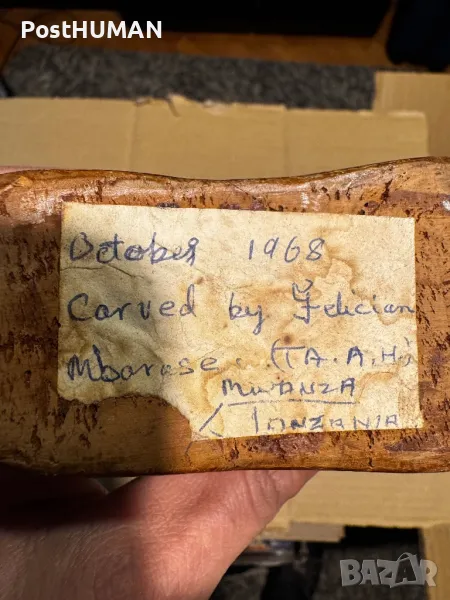 PostHUMAN
October 1968
Carved by Felician
Mbarase. (T.A.A.H.),
MWANZA
TANZANIA
BAZAR